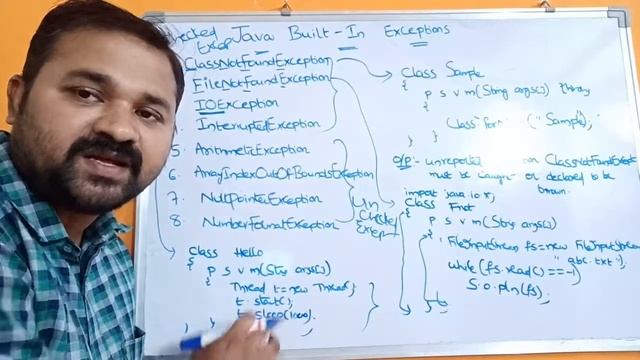 Java Built-In Exceptions
ClassNotFoundException
FileNotFoundException
IOException
InterruptedException
5. ArithmeticException
6. ArrayIndexOutOfBoundsException
7. NullPointerException
8. NumberFormatException
Un
Checked
class Hello
{ p s v m(String args[])
{ Thread t=new Thread;
t.start();
t.sleep(1000).
Class Sample
{
p s v m(String args[])
Class.for ("Sample");
}
o/p:- unreported ClassNotFound
must be or declared to be
thrown.
import java.io.*;
class Fnot
{ p s v m(String args[])
{ FileInputStream fs=new FileInputStream
"abc.txt");
while(fs.read()==-1)
S.o.pln(fs);
}